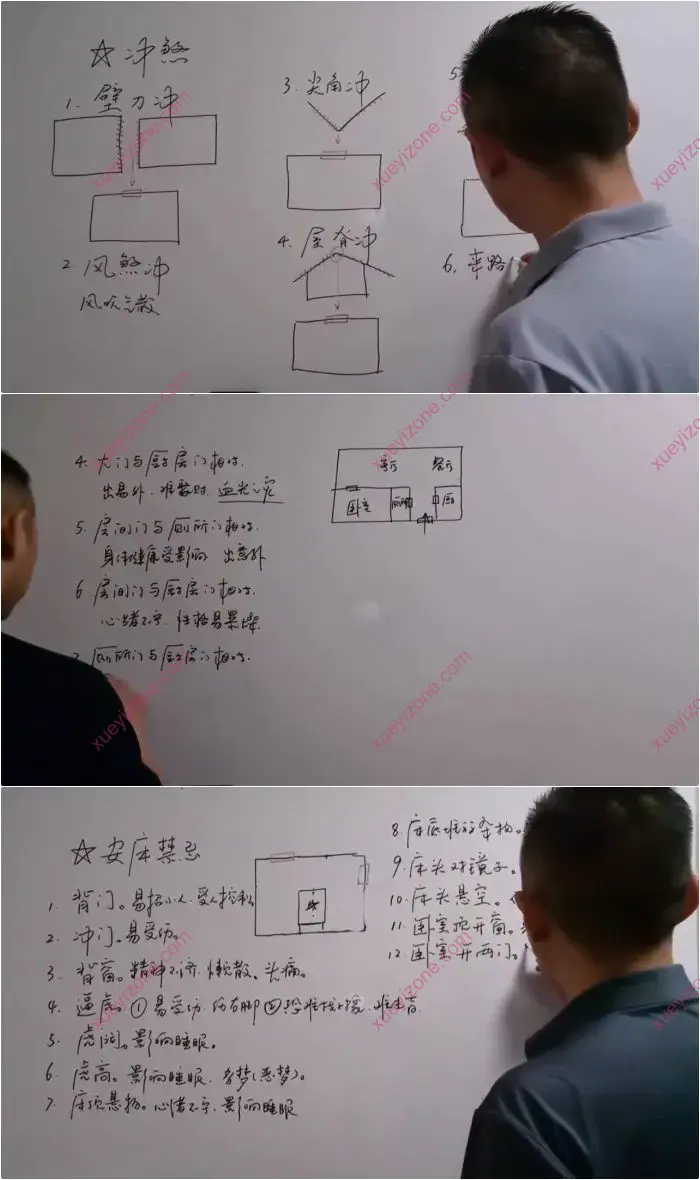 ☆ 冲煞
1. 壁刀冲
2. 风煞冲
风吹气散
3. 尖角冲
4. 屋脊冲
5.
6. 来路
4. 大门与厨房门相对.
出意外. 难聚财. 血光之灾
5. 房间门与厕所门相对.
身体健康受影响 出意外
6. 房间门与厨房门相对.
心绪不宁. 性格易暴燥.
7. 厕所门与厨房门相对.
客厅 餐厅
卧室 厕所 厨
☆ 安床禁忌
1. 背门。易招小人. 受人控制
2. 冲门。易受伤。
3. 背窗。精神不济. 懒散。头痛。
4. 逼虎。① 易受伤. 伤右脚 ②
5. 虎闭。影响睡眠。
6. 虎高。影响睡眠. 多梦(恶梦)。
7. 床顶悬物。心绪不宁. 影响睡眠
床
8. 床底堆放杂物。
9. 床头对镜子。
10. 床头悬空。
11. 卧室顶开窗。
12. 卧室开两门。
xueyizone.com
xueyizone.com
xueyizone.com
xueyizone.com
xueyizone.com
xueyizone.com
xueyizone.com
xueyizone.com
xueyizone.com
xueyizone.com
xueyizone.com
xueyizone.com